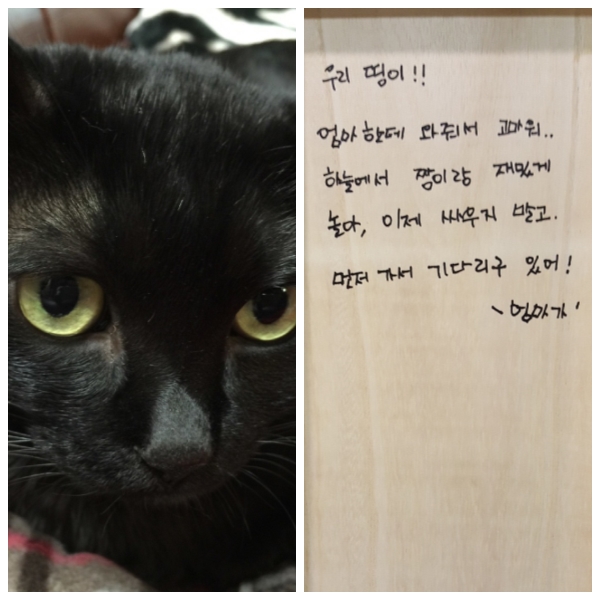 우리 띵이!!
엄마한테 와줘서 고마워..
하늘에서 짱이랑 재밌게
놀아, 이제 싸우지 말고.
먼저 가서 기다리구 있어!
~엄마가'